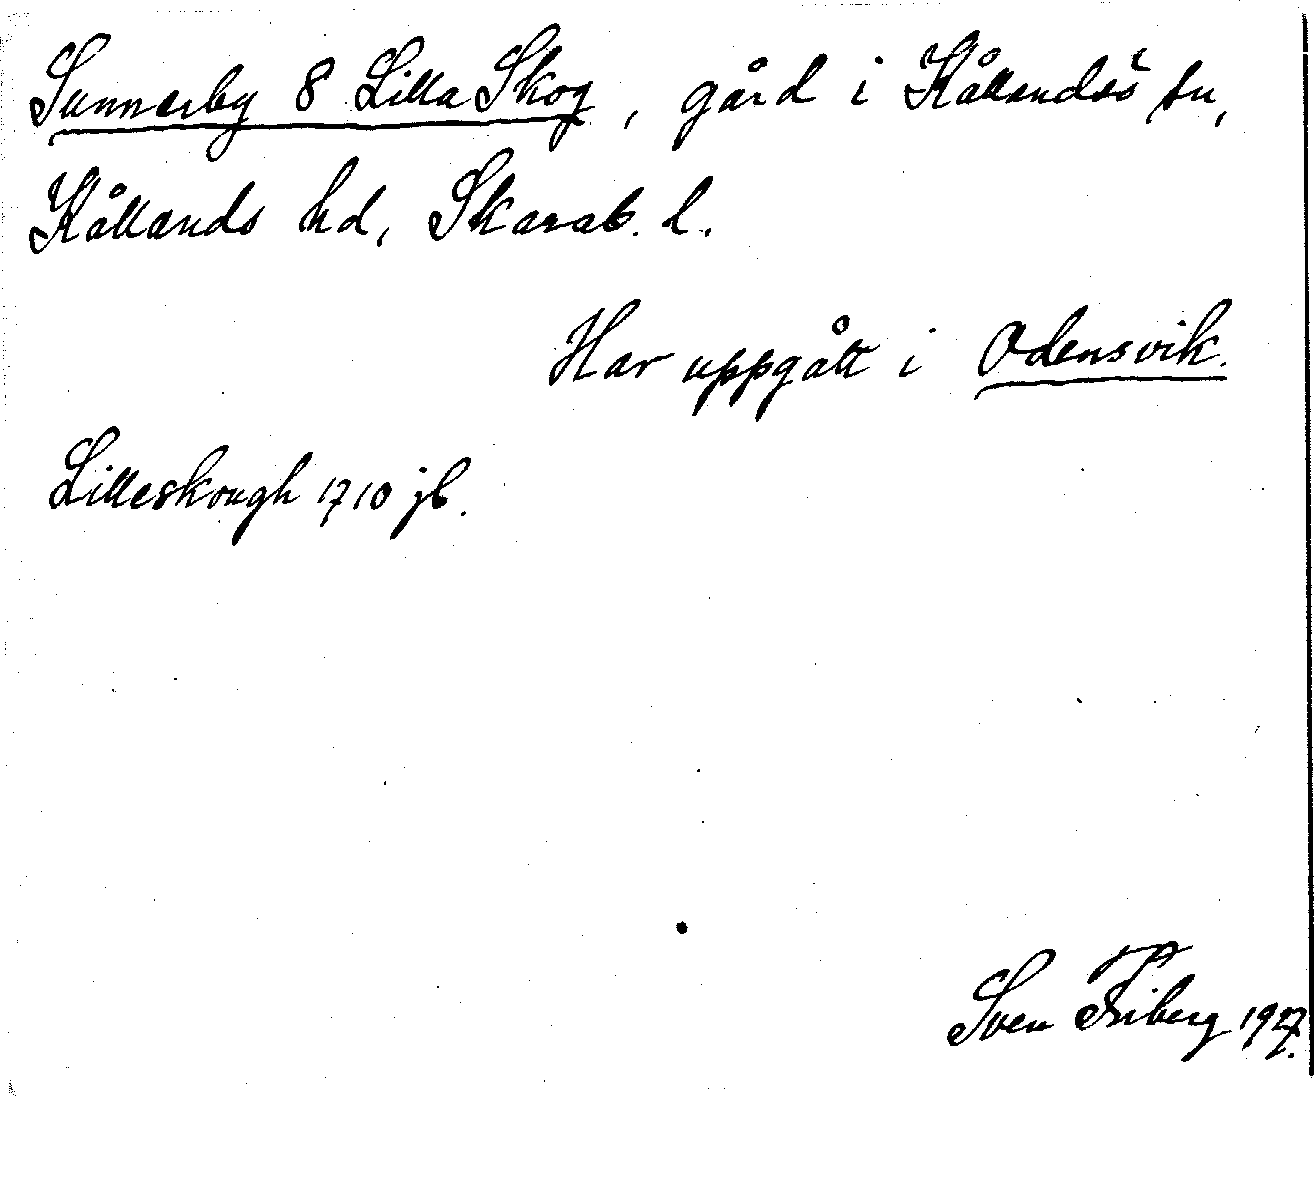 Sunnerby 8 Lilla Skog, gård i Kållandsö sn,
Kållands hd, Skarab. l.
Har uppgått i Odensvik.
Lilleskough 1710 jb.
Sven Friberg 1927.